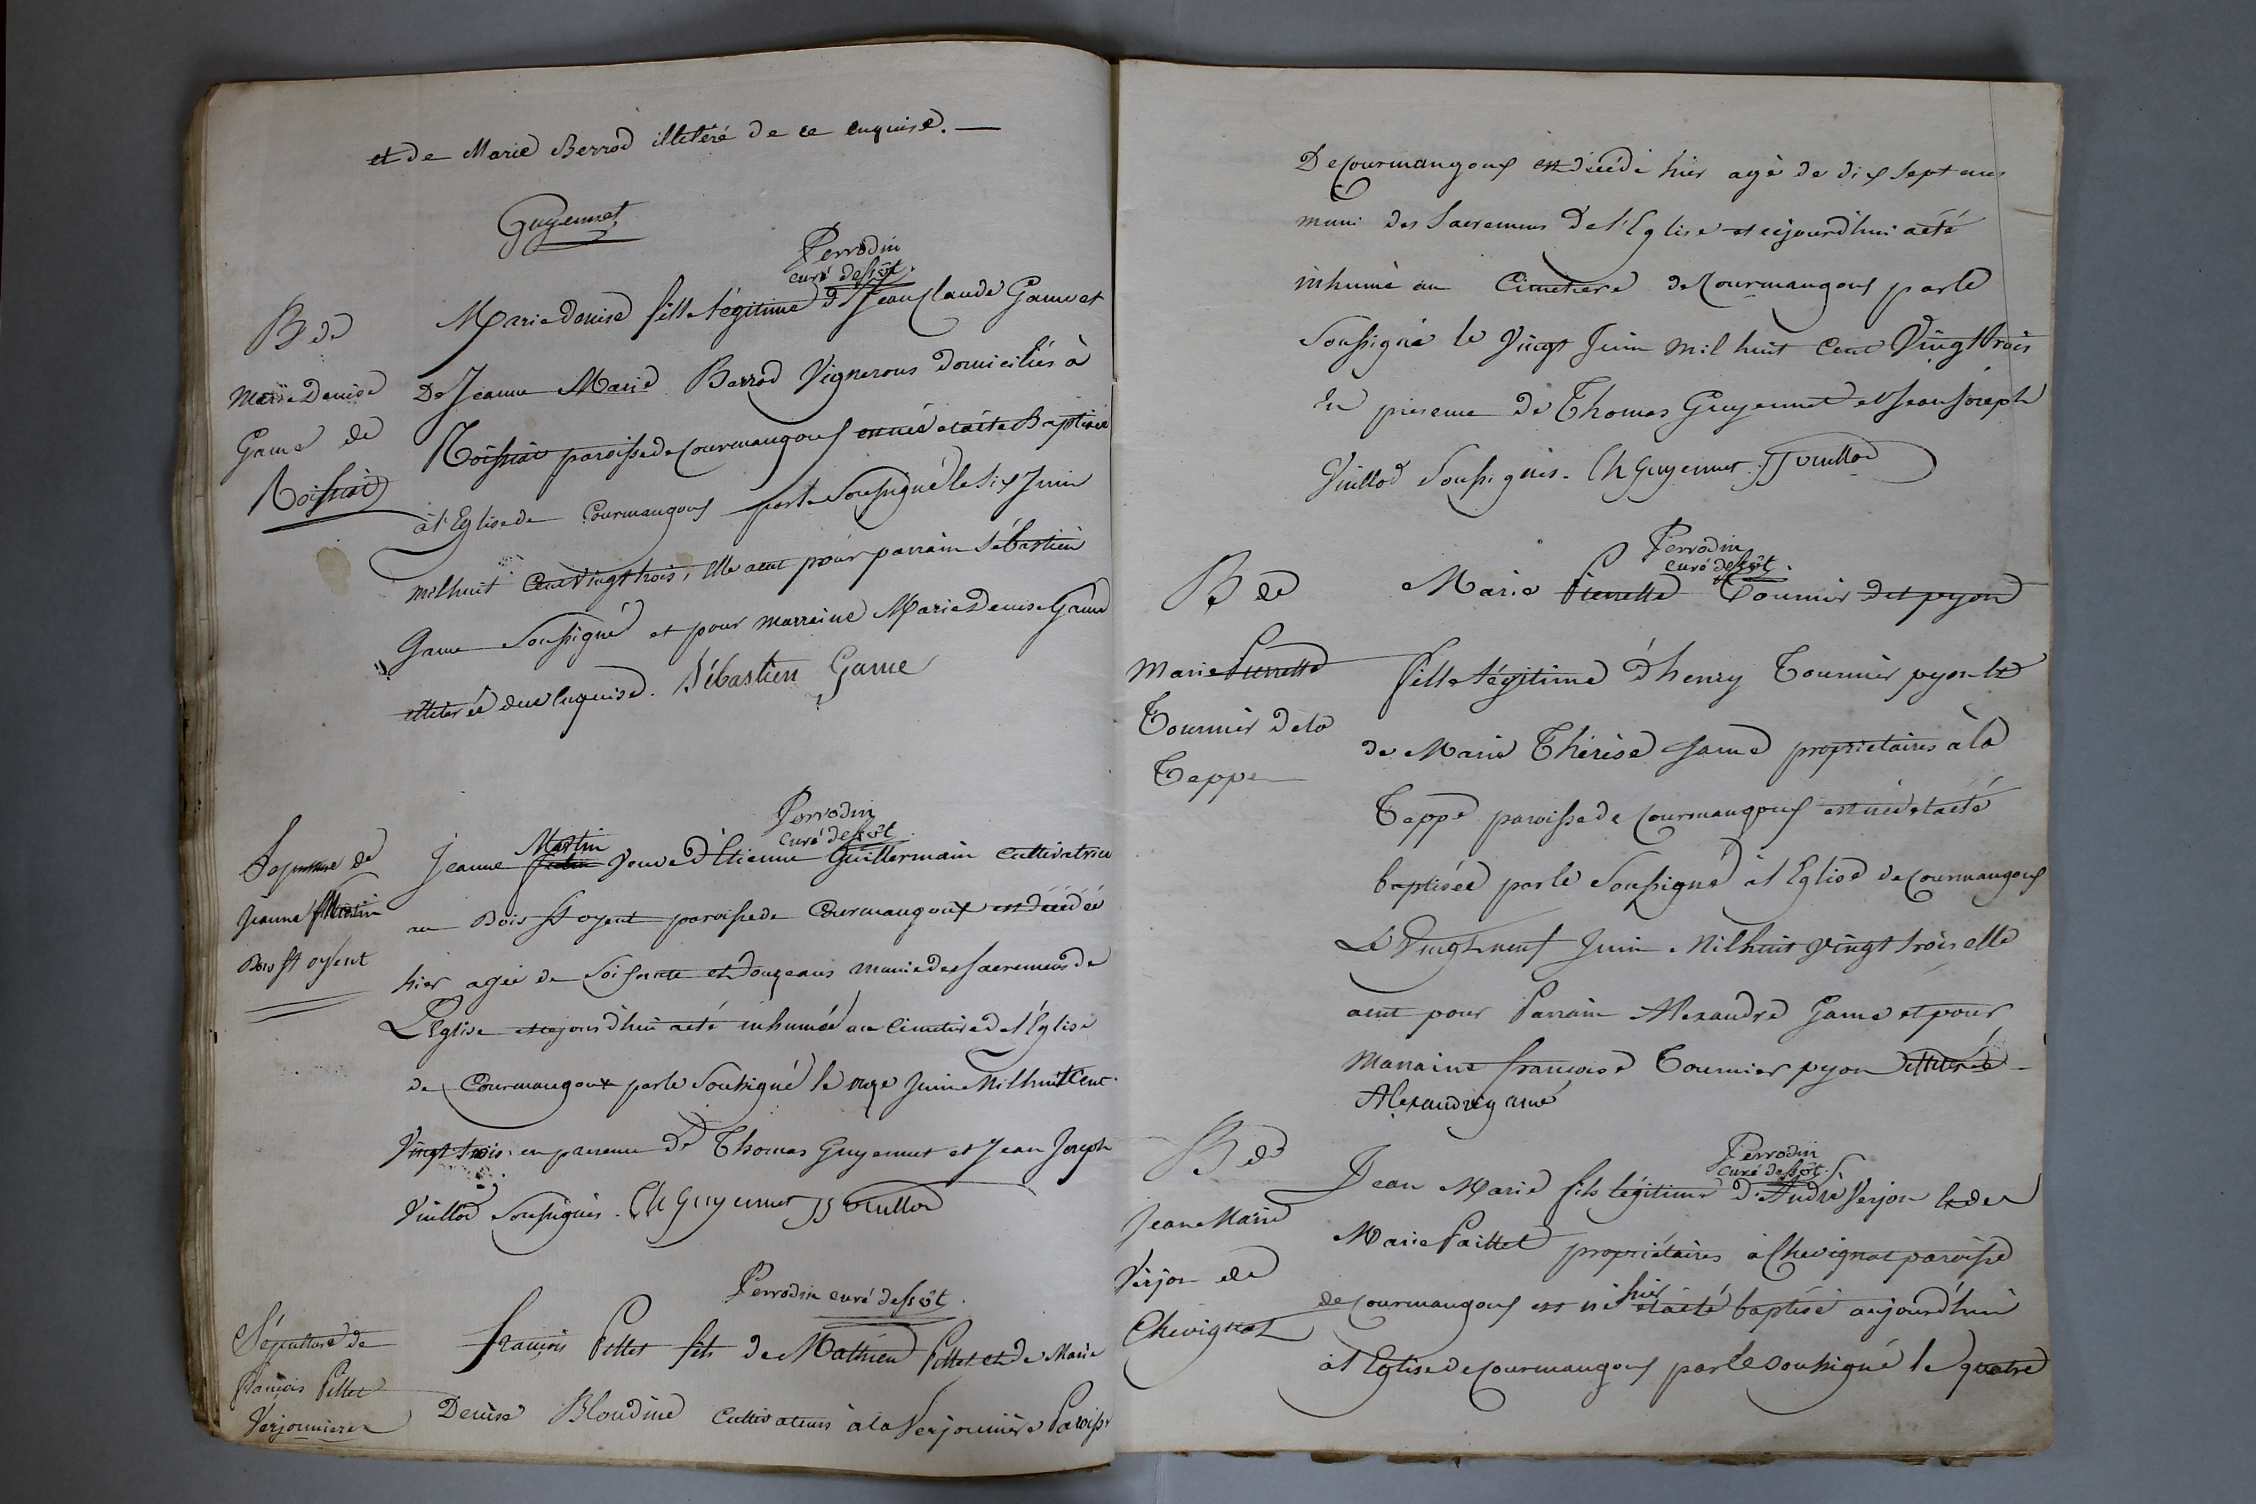 et de Marie Berrod illetéré de ce enquise. —
Guyennet
Perrodin
curé dessôt.
B de
Marie Denise
Game de
Roissiat
Marie denise fille légitime de Jean Claude Game et
De Jeanne Marie Berrod Vignerons domiciliés à
Roissiat paroisse de Courmangoux est née et a été Baptisée
à l'Eglise de Courmangoux par le Soussigné le six Juin
mil huit Cent Vingt trois, elle a eut pour parrain Sébastien
Game Soussigné et pour marraine Marie Denise Game
illeterée de ce enquise. Sébastien Game
Perrodin
curé dessôt
Sepulture de
Jeanne Martin
Bois St oyent
Jeanne Martin Veuve d'Etienne Guillermain Cultivatrice
au Bois St oyent paroisse de Courmangoux est décédée
hier agée de Soixante et Douze ans munie des sacremens de
L'Eglise et cejourd'hui a été inhumée au Cimetière de l'Église
de Courmangoux par le Soussigné le onze Juin Mil huit Cent
Vingt trois en presence de Thomas Guyennet et Jean Joseph
Vuillod Soussignés. Th Guyennet JJ Vuillod
Perrodin curé dessôt.
Sépulture de
François Pillet
Verjonniere
François Pillet fils de Mathieu Pillet et de Marie
Denise Blondine Cultivateurs à la Verjonnière Paroisse
De Courmangoux est décédé hier agé de dix sept ans
muni des Sacremens De l'Eglise et cejourd'hui a été
inhumé au Cimetiere de Courmangoux par le
Soussigné le Vingt Juin Mil huit Cent Vingt trois
En présence de Thomas Guyennet et Jean Joseph
Vuillod Soussignés. Th Guyennet JJ Vuillod
Perrodin
curé dessôt.
B de
Marie Pierrette
Tournier de la
Teppe
Marie Pierrette Tournier dit pyon
fille légitime d'henry Tournier pyon et
de Marie Thérèse Game propriétaires à la
Teppe paroisse de Courmangoux est née et a été
baptisée par le Soussigné à l'Eglise de Courmangoux
Le Vingt neuf Juin Mil huit vingt trois elle
a eut pour Parrain Alexandre Game et pour
Marraine françoise Tournier pyon illiterée
Alexandre game
Perrodin
curé dessôt.
B de
Jean Marie
Verjon de
Chevignat
Jean Marie fils légitime d'André Verjon et de
Marie Paillet propriétaires à Chevignat paroisse
de Courmangoux est né hier et a été baptisé aujourd'hui
à l'Eglise de Courmangoux par le soussigné le quatre